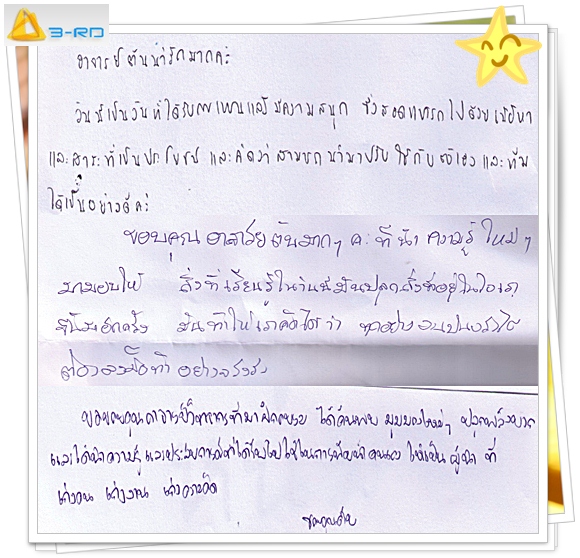 3-RD
อาจารย์ต้นน่ารักมากค่ะ
วันนี้เป็นวันที่ได้รับ และมีความสนุก ซึ่งสอดแทรกไปด้วยเนื้อหา
และสาระที่เป็นประโยชน์ และคิดว่าสามารถนำมาปรับใช้กับตัวเอง และทีม
ได้เป็นอย่างดีค่ะ
ขอบคุณ อาจารย์ต้นมากๆ ค่ะ ที่นำ ความรู้ ใหม่ๆ
มามอบให้ สิ่งที่เรียนรู้ในวันนี้มันปลุกสิ่งที่อยู่ในใจเรา
ขึ้นมาอีกครั้ง มันทำให้เราคิดได้ว่า ทุกอย่าง
ต้องลงมือทำ อย่างจริงจัง
ขอขอบคุณ ที่มาฝึกอบรม ได้ค้นพบ มุมมองใหม่ๆ ปลุกพลังบวก
และได้นำความรู้ และประสบการณ์ที่ได้รับไปใช้ในการ ให้เป็น ผู้นำ ที่
เก่งคน เก่งงาน เก่งความคิด
ขอบคุณครับ